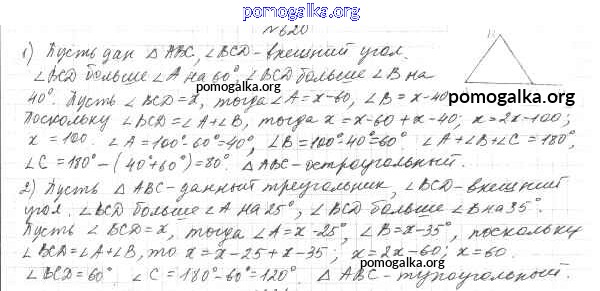 pomogalka.org
№620
1) Пусть дан △ ABC, ∠BCD - внешний угол.
∠BCD больше ∠A на 60° ∠BCD больше ∠B на
40°. Пусть ∠BCD = x, тогда ∠A = x-60, ∠B = x-40
pomogalka.org
Поскольку ∠BCD = ∠A+∠B, тогда x = x-60 + x-40; x = 2x-100;
x = 100. ∠A = 100°-60°=40°, ∠B = 100°-40°=60°. ∠A+∠B+∠C = 180°,
∠C = 180° - (40°+60°) = 80°. △ ABC - остроугольный.
pomogalka.org
2) Пусть △ ABC - данный треугольник, ∠BCD - внешний
угол. ∠BCD больше ∠A на 25°, ∠BCD больше ∠B на 35°.
Пусть ∠BCD = x, тогда ∠A = x-25°, ∠B = x-35°, поскольку
∠BCD = ∠A+∠B, то x = x-25 + x-35; x = 2x-60; x = 60.
∠BCD = 60°. ∠C = 180°-60°=120°. △ ABC - тупоугольный.
pomogalka.org